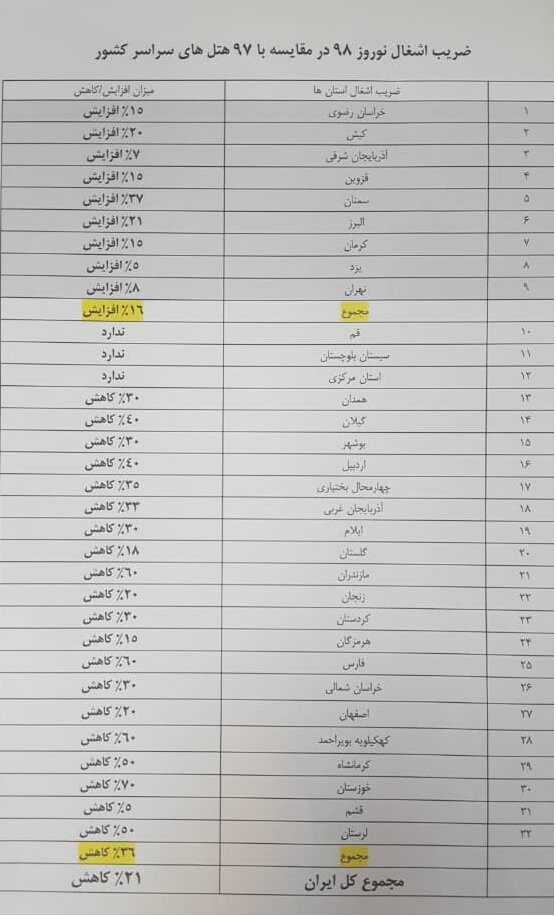 ضریب اشغال نوروز ۹۸ در مقایسه با ۹۷ هتل های سراسر کشور
ضریب اشغال استان ها میزان افزایش/کاهش
۱ خراسان رضوی ۱۵٪ افزایش
۲ کیش ۲۰٪ افزایش
۳ آذربایجان شرقی ۷٪ افزایش
۴ قزوین ۱۵٪ افزایش
۵ سمنان ۳۷٪ افزایش
۶ البرز ۲۱٪ افزایش
۷ کرمان ۱۵٪ افزایش
۸ یزد ۵٪ افزایش
۹ تهران ۸٪ افزایش
مجموع ۱۶٪ افزایش
۱۰ قم ندارد
۱۱ سیستان بلوچستان ندارد
۱۲ استان مرکزی ندارد
۱۳ همدان ۳۰٪ کاهش
۱۴ گیلان ۴۰٪ کاهش
۱۵ بوشهر ۳۰٪ کاهش
۱۶ اردبیل ۴۰٪ کاهش
۱۷ چهارمحال بختیاری ۳۵٪ کاهش
۱۸ آذربایجان غربی ۳۳٪ کاهش
۱۹ ایلام ۳۰٪ کاهش
۲۰ گلستان ۱۸٪ کاهش
۲۱ مازندران ۶۰٪ کاهش
۲۲ زنجان ۲۰٪ کاهش
۲۳ کردستان ۳۰٪ کاهش
۲۴ هرمزگان ۱۵٪ کاهش
۲۵ فارس ۶۰٪ کاهش
۲۶ خراسان شمالی ۳۰٪ کاهش
۲۷ اصفهان ۲۰٪ کاهش
۲۸ کهکیلویه بویراحمد ۶۰٪ کاهش
۲۹ کرمانشاه ۵۰٪ کاهش
۳۰ خوزستان ۷۰٪ کاهش
۳۱ قشم ۵٪ کاهش
۳۲ لرستان ۵۰٪ کاهش
مجموع ۳۶٪ کاهش
مجموع کل ایران ۲۱٪ کاهش